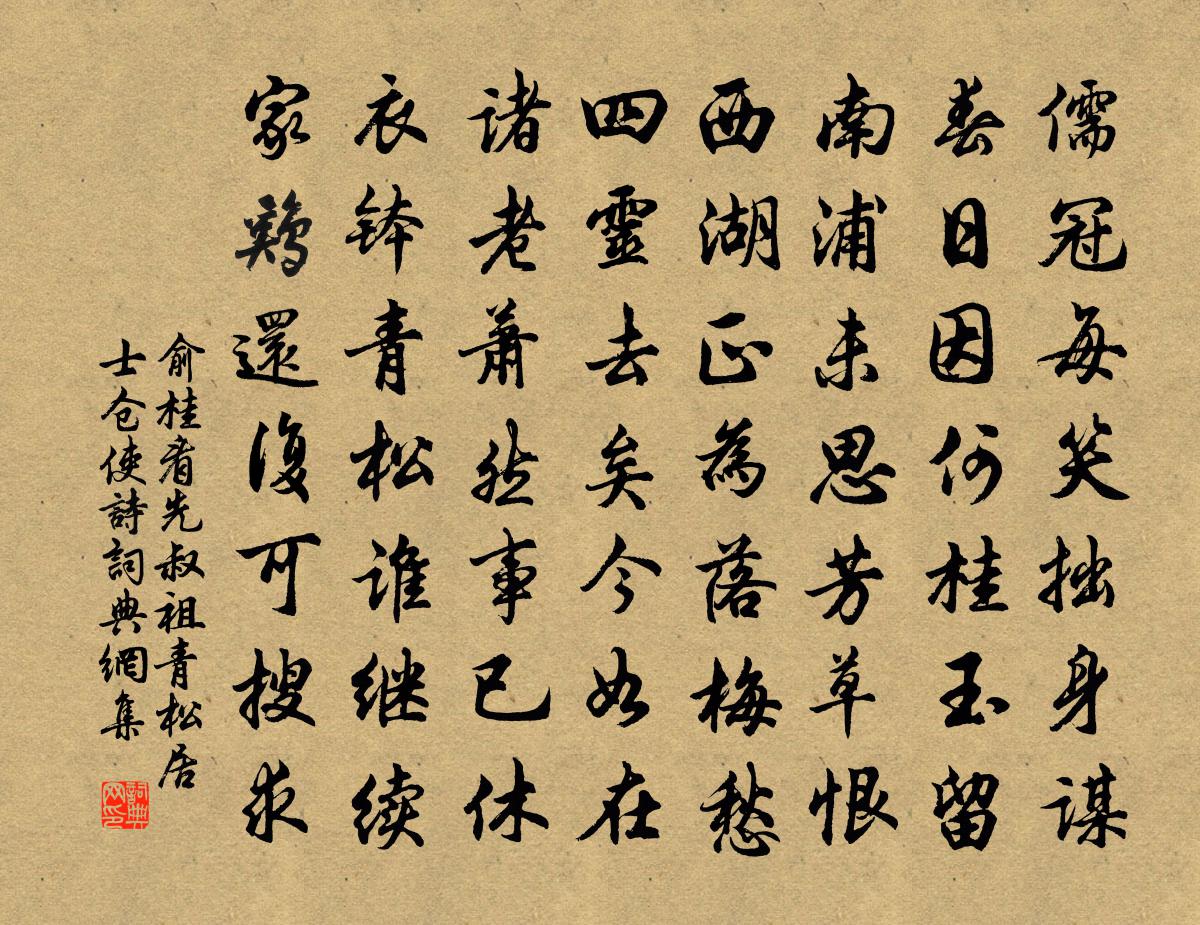 儒冠每笑拙身谋
春日因何桂玉留
南浦未思芳草恨
西湖正為落梅愁
四靈去矣今如在
诸老萧然事已休
衣钵青松谁继续
家鶏還復可搜求
俞桂看先叔祖青松居
士仓使詩詞典網集
詞典网印